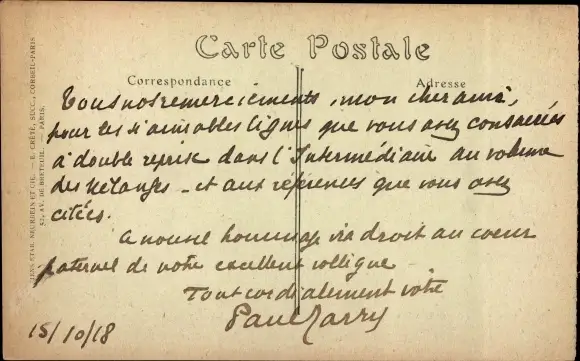 Carte Postale
Correspondance
Adresse
Tous nos remerciements, mon cher ami,
pour les si aimables lignes que vous avez consacrées
à double reprise dans l'Intermédiaire au volume
des Mélanges - et aux références que vous avez
citées.
Ce nouvel hommage va droit au coeur
paternel de votre excellent collègue
Tout cordialement votre
Paul
15/10/18
E. CRÉTÉ, SUCC., CORBEIL-PARIS
52, AV. DE BRETEUIL. PARIS.